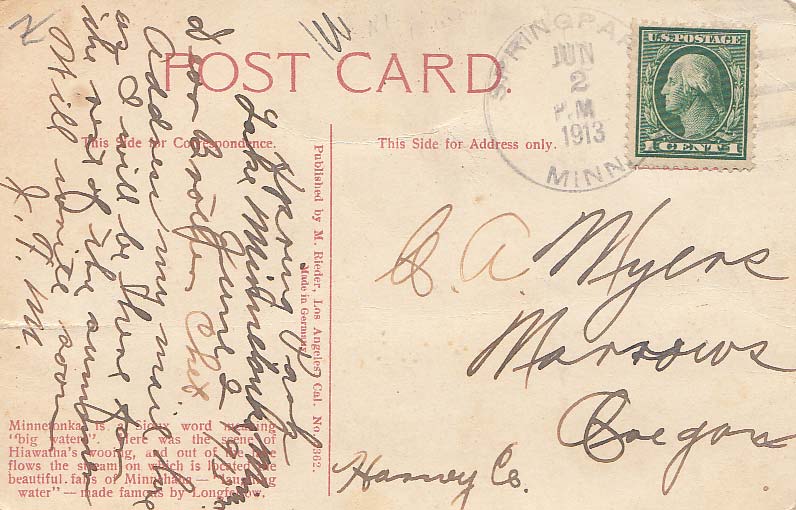 POST CARD.
This Side for Correspondence.
This Side for Address only.
SPRINGPARK
JUN
2
P.M
1913
MINN
U.S. POSTAGE
1 CENT 1
Spring Park
Lake Minnetonka Minn
June 2
Dear Brother Chet
Address my mail here
as I will be here for
the rest of the summer
Will write soon
J. F. M.
C. A. Myers
Narrows
Oregon
Harney Co.
Published by M. Rieder, Los Angeles, Cal. No.
Made in Germany
Minnetonka is a Sioux word meaning
"big water". Here was the scene of
Hiawatha's wooing, and out of the lake
flows the stream on which is located the
beautiful falls of Minnehaha — "laughing
water" — made famous by Longfellow.